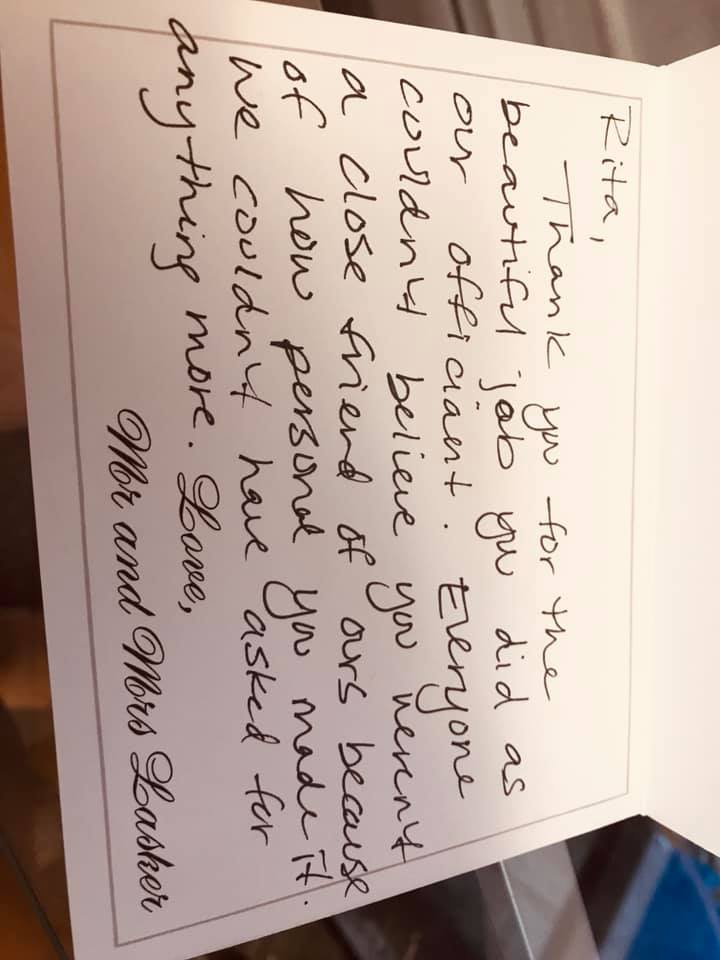 Rita,
Thank you for the
beautiful job you did as
our officiant. Everyone
couldn't believe you weren't
a close friend of ours because
of how personal you made it.
We couldn't have asked for
anything more. Love,
Mr and Mrs Lasker